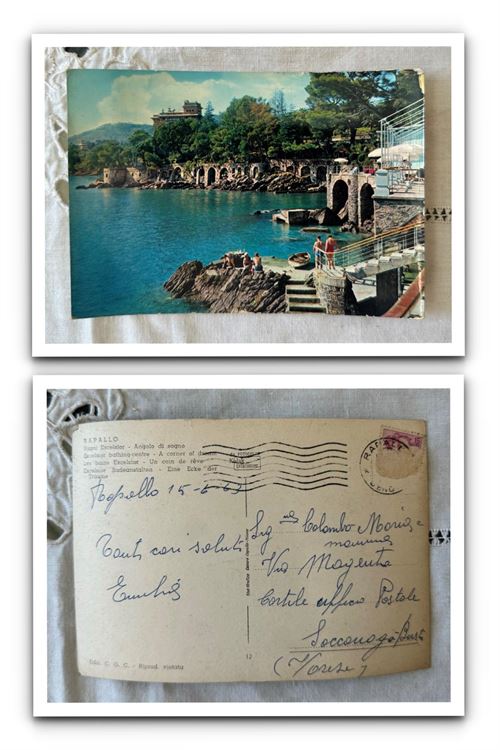 RAPALLO
Bagni Excelsior - Angolo di sogno
Excelsior bathing-centre - A corner of dream
Les bains Excelsior - Un coin de rêve
Excelsior Badeanstalten - Eine Ecke der
Träume
RAPALLO
Rapallo 15-6-6
Tanti cari saluti
Sig.na Colombo Maria e
mamma
Via Magenta
Cortile ufficio Postale
(Varese)
Ediz. C. G. C. - Riprod. vietata
12